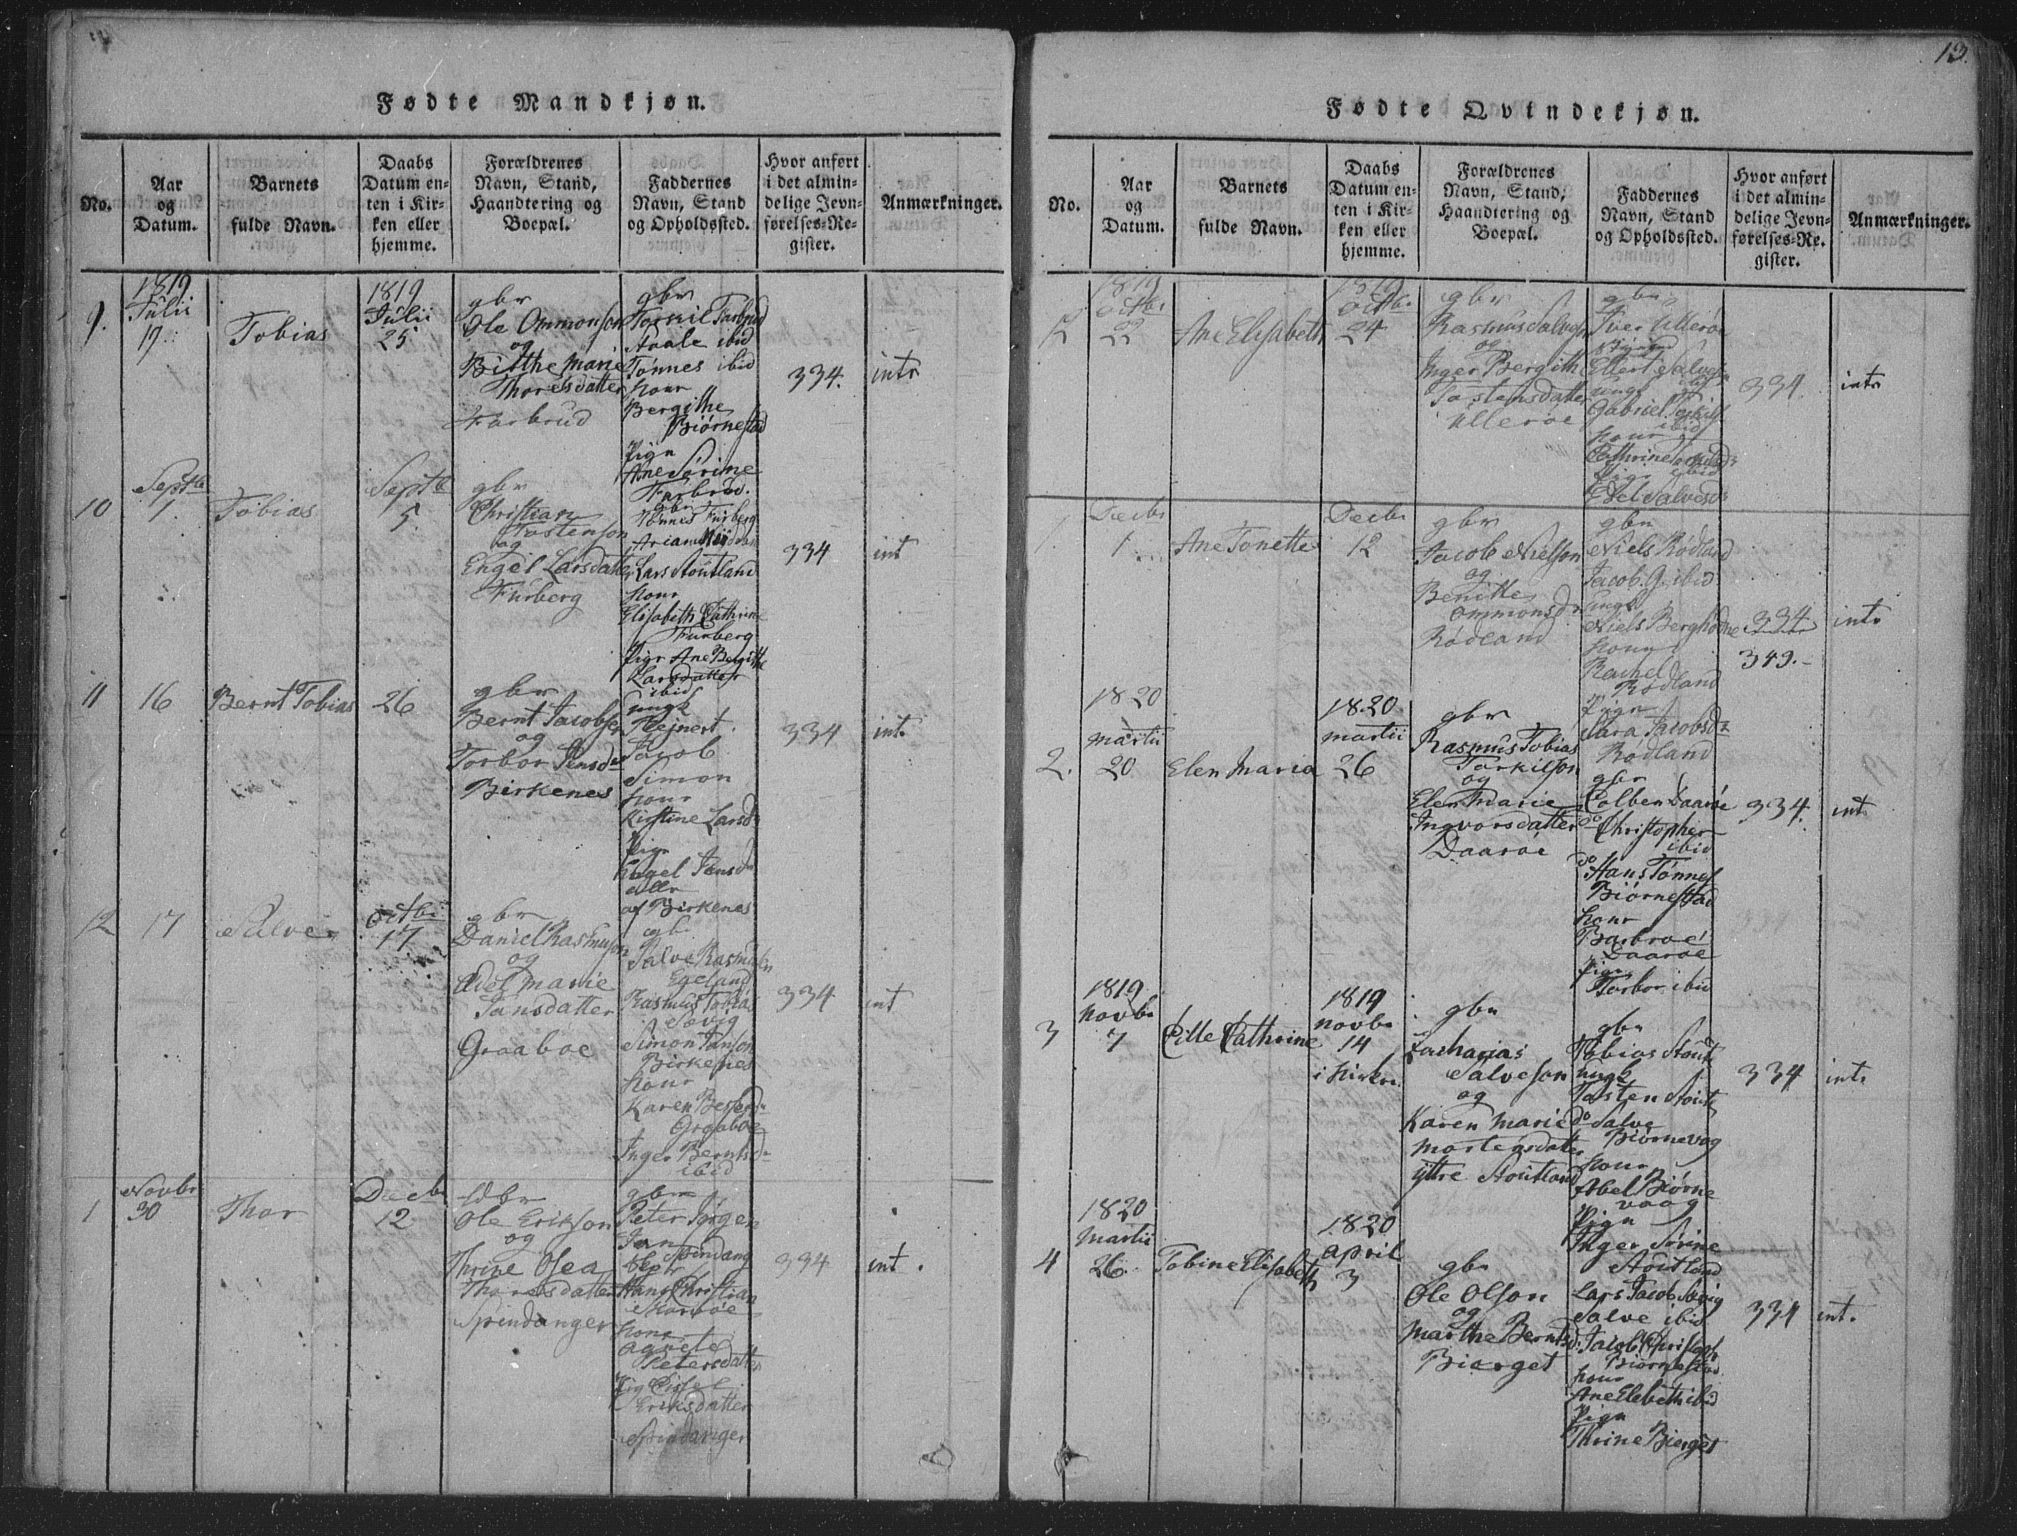 Fødte Mandkjøn.
No.
Aar
og
Datum.
Barnets
fulde Navn.
Daabs
Datum en-
ten i Kir-
ken eller
hjemme.
Forældrenes
Navn, Stand,
Haandtering og
Boepæl.
Faddernes
Navn, Stand
og Opholdssted.
Hvor anført
i det almin-
delige Jevn-
førelses-Re-
gister.
Anmærkninger.
9.
1819
Julii
17
Tobias
1819
Julii
25
gbr
Ole Ommonson
og
Birthe Marie
Thoresdatter
Farbrud
gbr
Torkil Farbrud
Aaale ibid
Tønnes ibid
Konr
Bergithe
Biørnestad
Pign
Ane Sørine
Farbrud.
334.
intr
10
Septb
1.
Tobias
Septb
5.
gbr
Christian
Tostenson
og
Engel Larsdatter
Furberg
gbr
Tønnes Furberg
Lars Stoutland
Konr
Elisabeth Cathrine
Furberg
Pigr Ane Bergitthe
Larsdatter
ibid
334
int
11
16
Bernt Tobias
26
gbr
Bernt Jacobsen
og
Torbor Jensdr
Birkenes
ungk
Rejnert
Jacob
Simon
Konr
Kirstine Larsdr
Pigr
Engel Jensdr
alle
af Birkenes
334
int.
12
17
Salve
Octbr
17
gbr
Daniel Rasmuson
og
Edel Marie
Jansdatter
Graaboe
gbr
Salve Rasmusen
Egeland
Rasmus Tobia
Søvig
Simon Janson
Birkenes
Konr
Karen Bessesdr
Graaboe
Inger Berntsdr
ibid
334
int
1
Novbr
30
Thor
Decbr
12
gbr
Ole Erikson
og
Thrine Olea
Thoresdatter
Spindanger
gbr
Peter Jørgen
Jan
Spindang
Hans Christian
Skarbøe
Konr
Agnete
Petersdatter
Pig Cissel
Eriksdatter
Spindanger
334
int.
13.
Fødte Qvindekjøn.
No.
Aar
og
Datum.
Barnets
fulde Navn.
Daabs
Datum en-
ten i Kir-
ken eller
hjemme.
Forældrenes
Navn, Stand,
Haandtering og
Boepæl.
Faddernes
Navn, Stand
og Opholdssted.
Hvor anført
i det almin-
delige Jevn-
førelses-Re-
gister.
Anmærkninger.
12
1819
Octbr
22
Ane Elisabeth
1819
Octbr
24
gbr
Rasmus Salveson
og
Inger Bergith
Tostensdatter
Ullerøe
gbr
Iver Ullerøe
Ellert Salves
ungk
Gabriel Torkils
ibid
Konr
Cathrine
ibid
Pigr
Edel Salvesdr
334.
intr
1.
Decbr
1
Ane Tonette
Decbr
12
gbr
Jacob Nielson
og
Benitte
Ommonsdr
Rødland
gbr
Niels Rødland
Jacob G. ibid
ungk
Niels Berghone
Konr
Rachel
Rødland
Pign
Sara Jacobsdr
Rødland
334
349.
int.
2.
1820
Martii
20
Elen Maria
1820
martii
26
gbr
Rasmus Tobias
Torkilson
og
Elen Marie
Ingvorsdatter
Daarøe
gbr
Colben Daarøe
do Christopher
ibid
do Hans Tønnes
Biørnestad
Konr
Barbroe
Daarøe
Pign
Torbor ibid
334.
int.
3
1819
Novbr
7
Cille Cathrine
1819
Novbr
14
i Kirken
gbr
Zacharias
Salveson
og
Karen Marie
Mortensdatter
yttre Stoutland
gbr
Tobias Stout
ungk
Tosten Stoutl
do Salve
Biørnevog
Konr
Abel Biørne
vaag
Pign
Inger Sørine
Stoutland
334
int.
4
1820
Martii
26.
Tobine Elisabeth
1820
April
3
gbr
Ole Olson
og
Marthe Berntsd:
Bierget
Lars Jacob Søvig
Salve ibid
Jacob Christoph
Biørnestad
Konr
Ane Elsbeth ibid
Pign
Thrine Bierget
334
int.